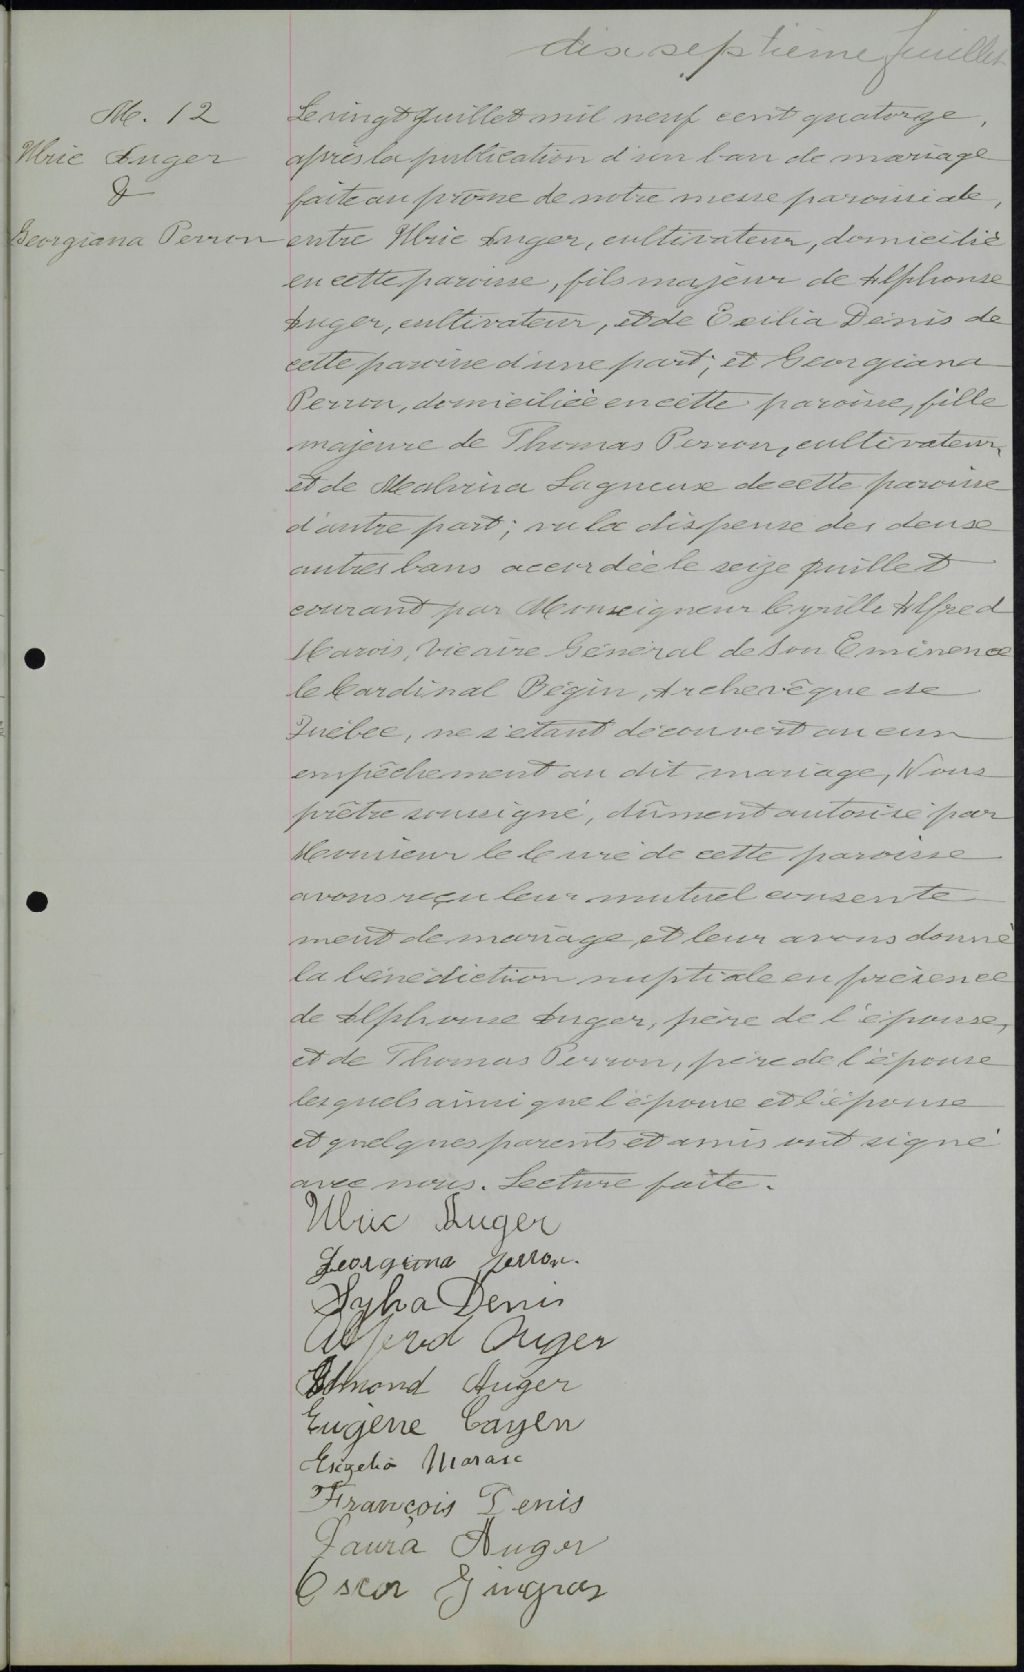 dix septième feuillet
M. 12
Ulric Auger
&
Georgiana Perron
Le vingt Juillet mil neuf cent quatorze,
après la publication d'un ban de mariage
faite au prône de notre messe paroissiale,
entre Ulric Auger, cultivateur, domicilié
en cette paroisse, fils majeur de Alphonse
Auger, cultivateur, et de Exilia Denis de
cette paroisse d'une part; et Georgiana
Perron, domiciliée en cette paroisse, fille
majeure de Thomas Perron, cultivateur,
et de Malvina Lagneux de cette paroisse
d'autre part; vu la dispense des deux
autres bans accordée le seize Juillet
courant par Monseigneur Cyrille Alfred
Marois, Vicaire Général de Son Eminence
le Cardinal Bégin, Archevêque de
Québec, ne s'étant découvert aucun
empêchement au dit mariage, Nous
prêtre soussigné, dûment autorisé par
Monsieur le Curé de cette paroisse
avons reçu leur mutuel consente-
ment de mariage et leur avons donné
la bénédiction nuptiale en présence
de Alphonse Auger, père de l'époux,
et de Thomas Perron, père de l'épouse
lesquels ainsi que l'époux et l'épouse
et quelques parents et amis ont signé
avec nous. Lecture faite.
Ulric Auger
Georgiana Perron.
Sylva Denis
Alfred Auger
Edmond Auger
Eugène Cayen
François Denis
Laura Auger
Oscar Gingras